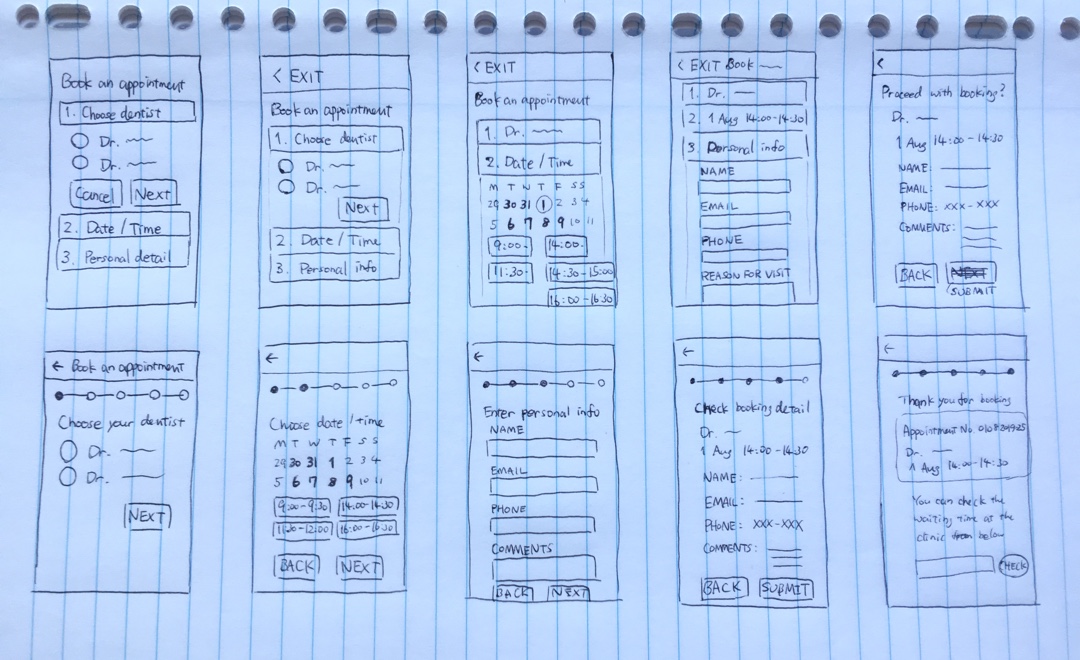 Book an appointment
1. Choose dentist
Dr.
Dr.
Cancel Next
2. Date / Time
3. Personal detail
< EXIT
Book an appointment
1. Choose dentist
Dr.
Dr.
Next
2. Date / Time
3. Personal info
< EXIT
Book an appointment
1. Dr.
2. Date / Time
M T W T F S S
29 30 31 1 2 3 4
5 6 7 8 9 10 11
9:00- 14:00-
11:30- 14:30-15:00
16:00-16:30
< EXIT Book
1. Dr.
2. 1 Aug 14:00-14:30
3. Personal info
NAME
EMAIL
PHONE
REASON FOR VISIT
<
Proceed with booking?
Dr.
1 Aug 14:00-14:30
NAME:
EMAIL:
PHONE: XXX-XXX
COMMENTS:
BACK NEXT
SUBMIT
← Book an appointment
Choose your dentist
Dr.
Dr.
NEXT
←
Choose date / time
M T W T F S S
29 30 31 1 2 3 4
5 6 7 8 9 10 11
9:00-9:30 14:00-14:30
11:30-12:00 16:00-16:30
BACK NEXT
←
Enter personal info
NAME
EMAIL
PHONE
COMMENTS
BACK NEXT
←
Check booking detail
Dr.
1 Aug 14:00-14:30
NAME:
EMAIL:
PHONE: XXX-XXX
COMMENTS:
BACK SUBMIT
←
Thank you for booking
Appointment No.
Dr.
1 Aug 14:00-14:30
You can check the
waiting time at the
clinic from below
CHECK